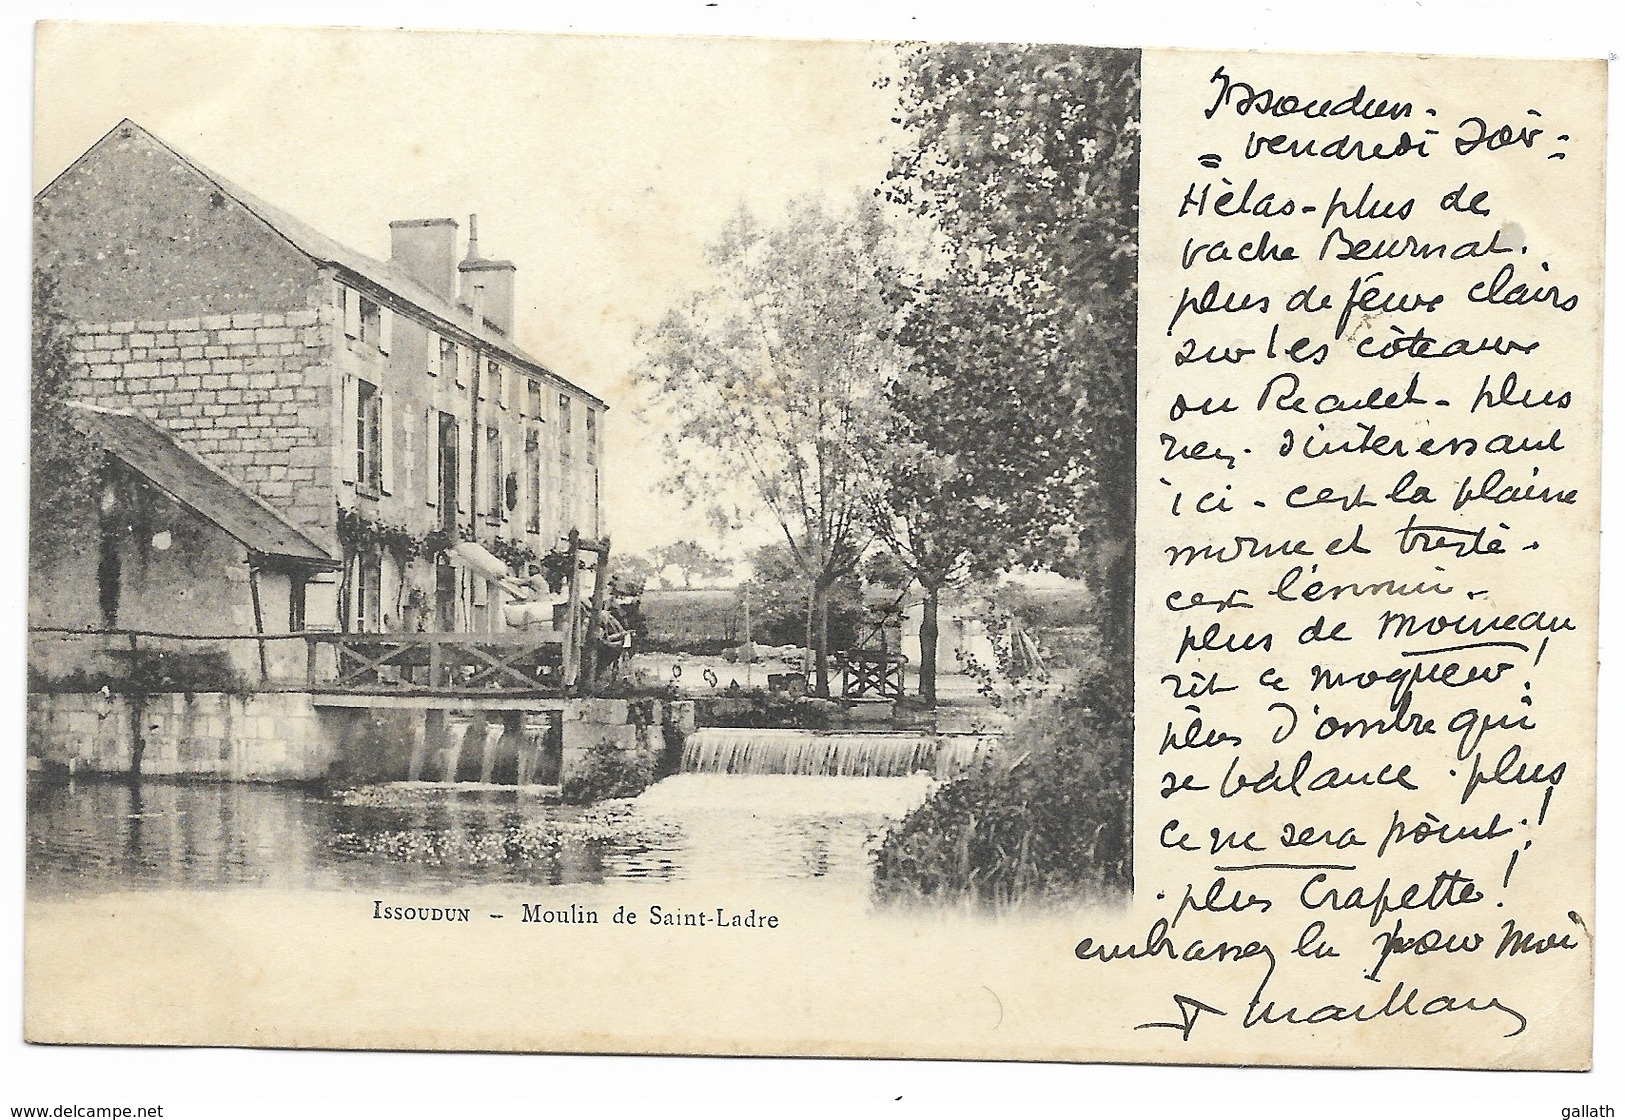 Issoudun -
= vendredi soir -
Hèlas - plus de
vache Beurnat.
plus de feux clairs
sur les côteaux
ou Reaulet - plus
rien. d'intéressant
ici - c'est la plaine
morne et triste -
c'est l'ennui -
plus de moineau
rit ce moqueur !
plus d'ombre qui
se balance . plus
ce ne sera point . !
. plus Crapette !
embrassez la pour moi
Maillary
ISSOUDUN - Moulin de Saint-Ladre
www.delcampe.net
gallath